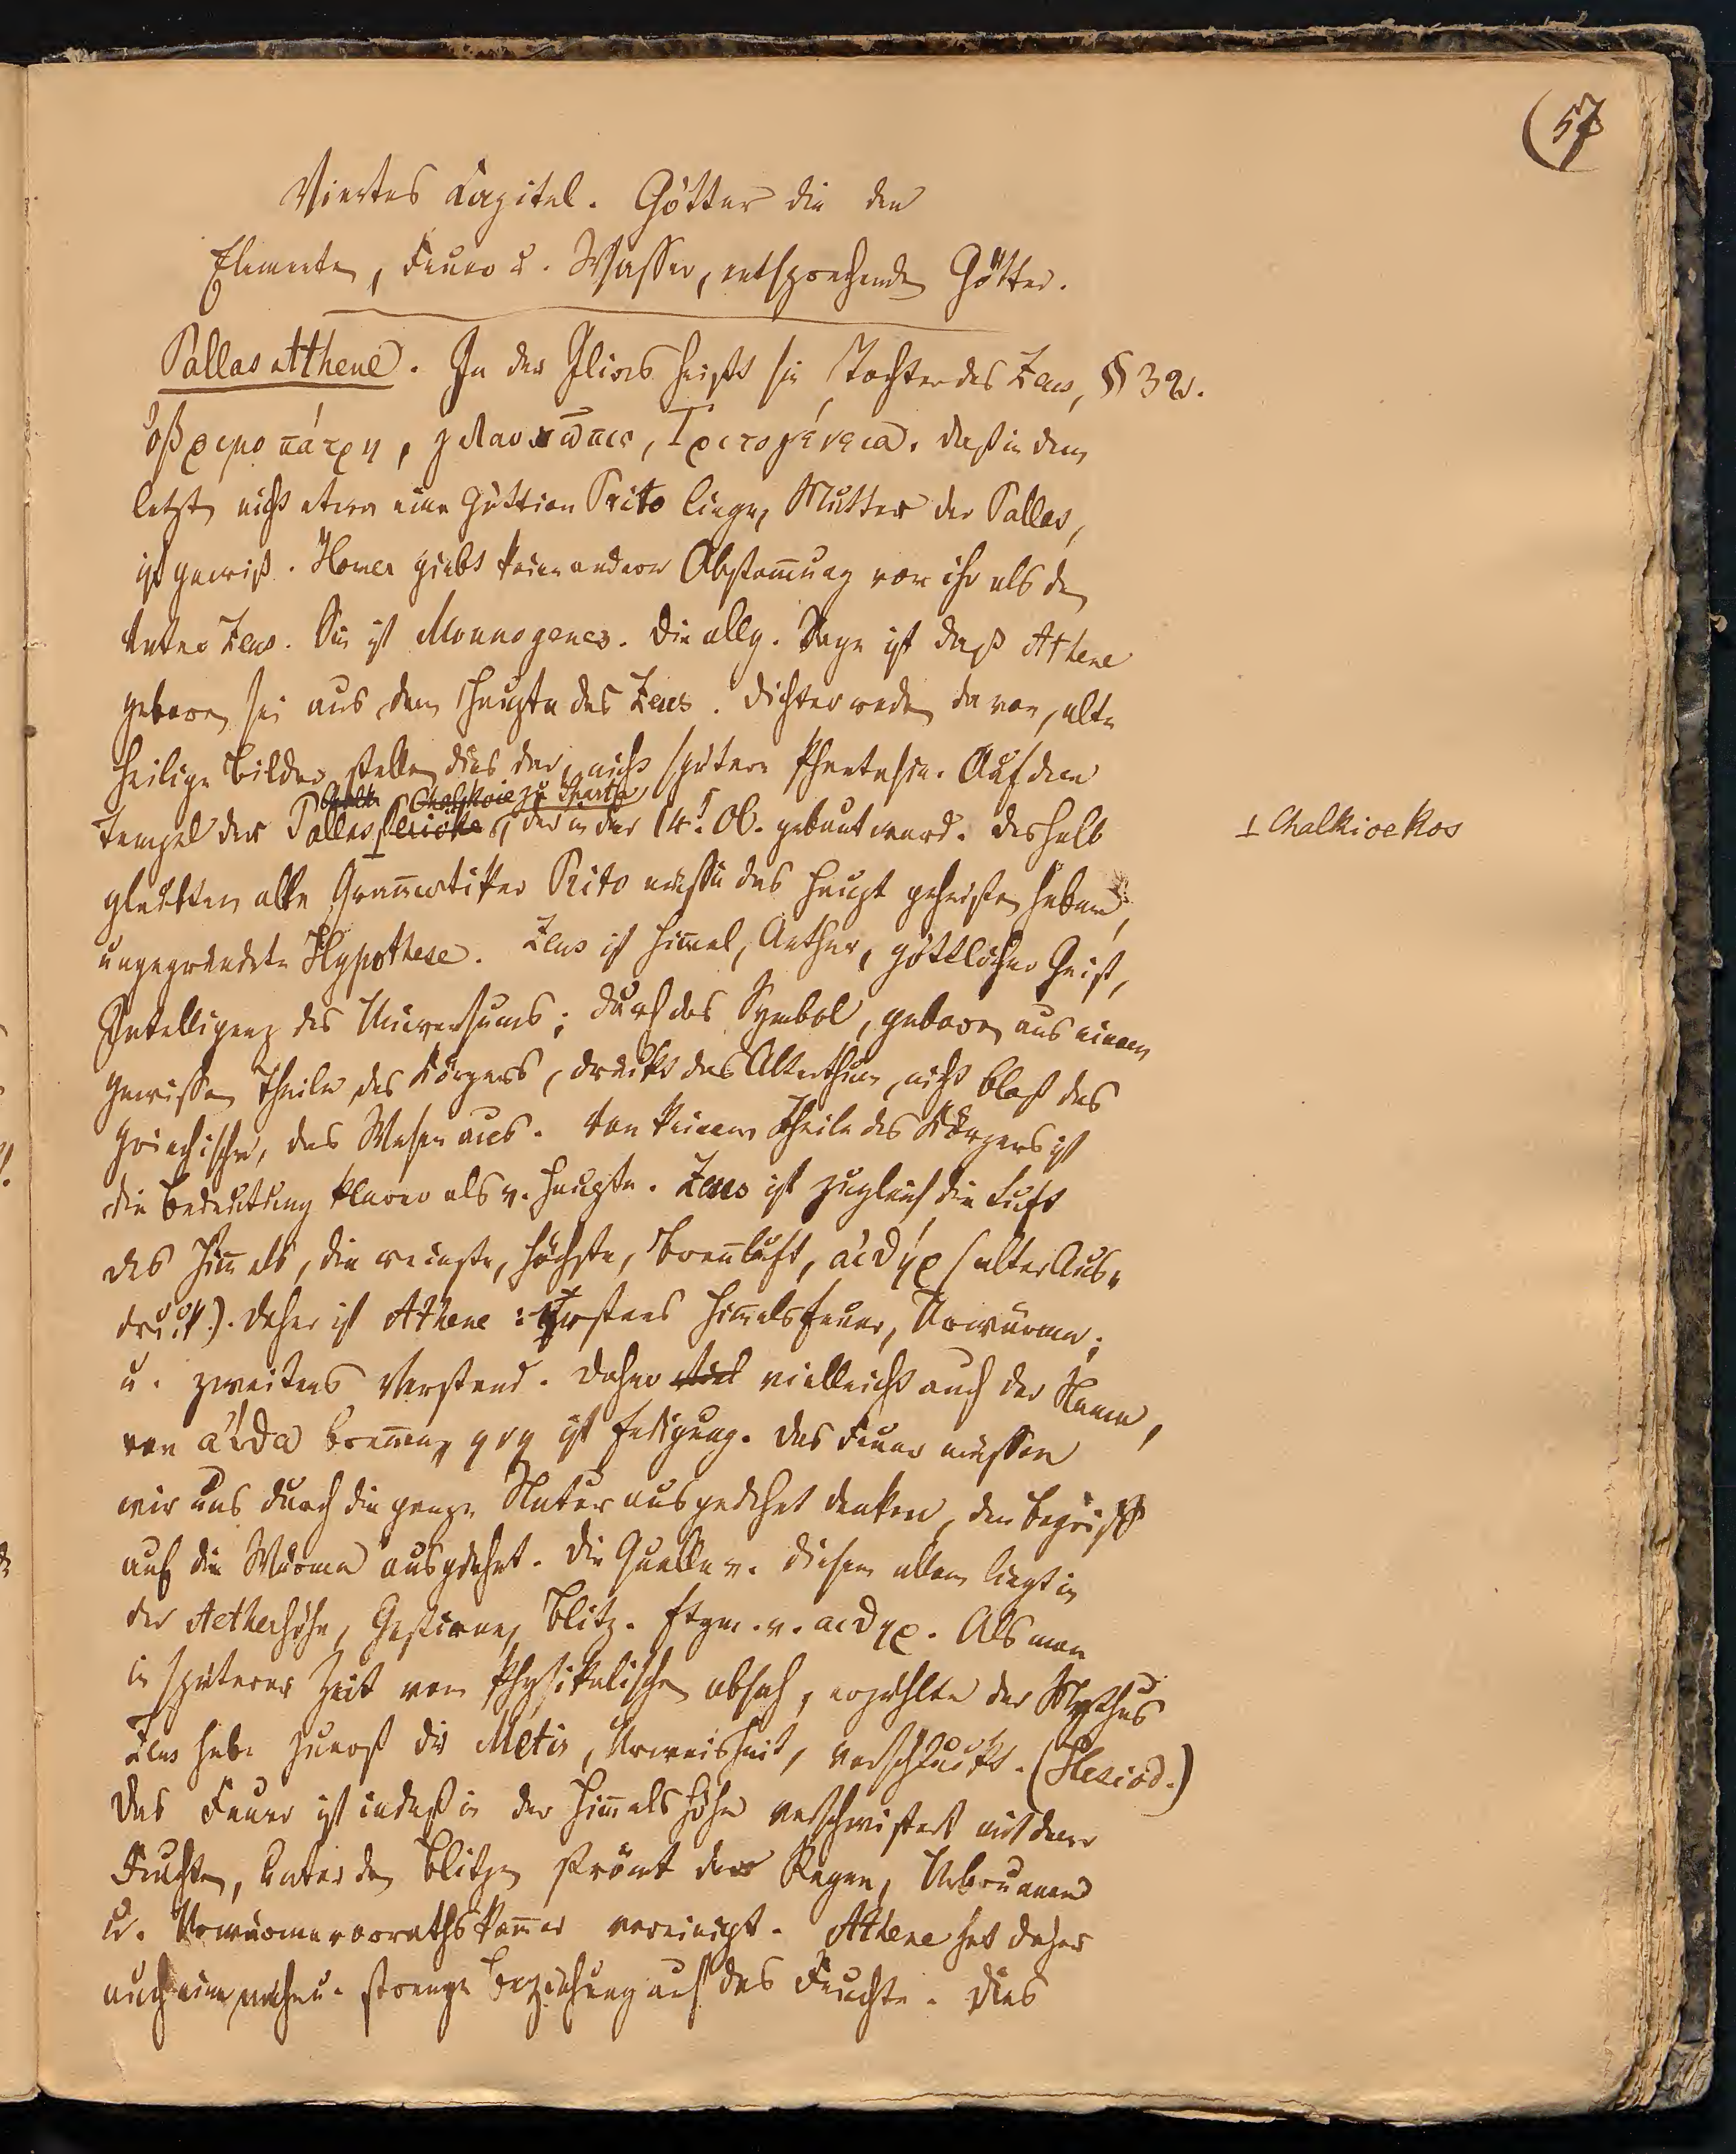 (57
Viertes Kapitel. Götter die den
Elementen, Feuer u. Wasser, entsprechende Götter.
Pallas Athene. In der Ilias heißt sie Tochter des Zeus, §32.
ὀβριμοπάτρη, γλαυκῶπις, Τριτογένεια. Daß in dem
letzt nicht etwa eine Göttinn Trito liege, Mutter der Pallas,
ist gewiß. Homer giebt keine andere Abstam̄ung von ihr als den
Vater Zeus. Sie ist Monnogenes. Die allg. Sage ist daß Athene
geboren sei aus dem Haupte des Zeus. Dichter reden davon, alte
heilige Bilder stellen dies dar, nicht spätere Phantasie. Auf dem
zu Sparta
Tempel der Pallas, der in der 14t. Ol. gebaut ward. Deshalb
⊥ Chalkioekos
glaubten alte Gram̄atiker Trito müsse das Haupt geheißen haben,
ungegründete Hypothese. Zeus ist Him̄el, Aether, göttlicher Geist,
Intelligenz des Universums; durch das Symbol, geboren aus einem
gewissen Theile des Körpers, drückt das Alterthum, nicht bloß das
griechische, das Wesen aus. Von keinem Theile des Körpers ist
die Bedeutung klarer als v. Haupte. Zeus ist zugleich die Luft
des Him̄els, die reinste, höchste, Bren̄luft, αἰθήρ (alter Aus-
druck.). Daher ist Athene: Erstens Him̄elsfeuer, Urwärme;
u. zweitens Verstand. Daher vielleicht auch der Name,
von αἴθω bren̄en, ist Endigung. Das Feuer müssen
wir uns durch die ganze Natur ausgedehnt denken, den Begriff
auf die Wärme ausgedehnt. Die Quelle v. diesem allem liegt in
der Aetherhöhe, Gestirne, Blitz. Etym. v. αἰθήρ. Als man
in späterer Zeit vom Physikalischen absah, erzählte der Mythus
Zeus habe zuerst die Metis, Urweisheit, verschluckt. (Hesiod.)
Das Feuer ist indeß in der Him̄elshöhe verschwistert mit dem
Feuchten, unter den Blitzen strömt der Regen, Urbrunnen
u. Urwärmevorathskam̄er vereinigt. Athene hat daher
auch eine nahe u. strenge Beziehung auf das Feuchte. Dies